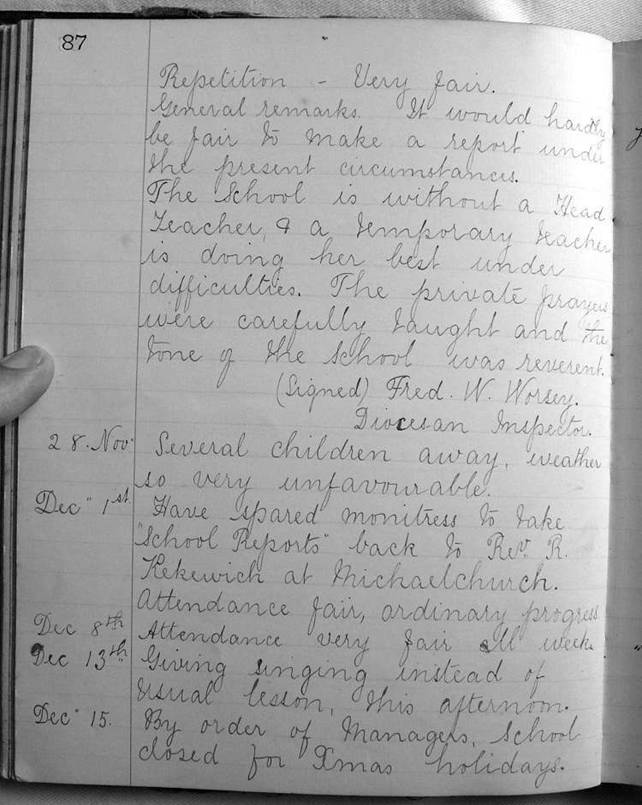 87
Repetition - Very fair.
General remarks. It would hardly
be fair to make a report under
the present circumstances.
The School is without a Head
Teacher, & a temporary teacher
is doing her best under
difficulties. The private prayers
were carefully taught and the
tone of the School was reverent.
(Signed) Fred. W. Worsey.
Diocesan Inspector.
28. Nov. Several children away, weather
so very unfavourable.
Dec" 1st. Have spared monitress to take
"School Reports" back to Rev. R.
Kekewich at Michaelchurch.
Attendance fair, ordinary progress
Dec 8th Attendance very fair all week.
Dec 13th. Giving singing instead of
usual lesson, this afternoon.
Dec" 15. By order of Managers, School
closed for Xmas holidays.